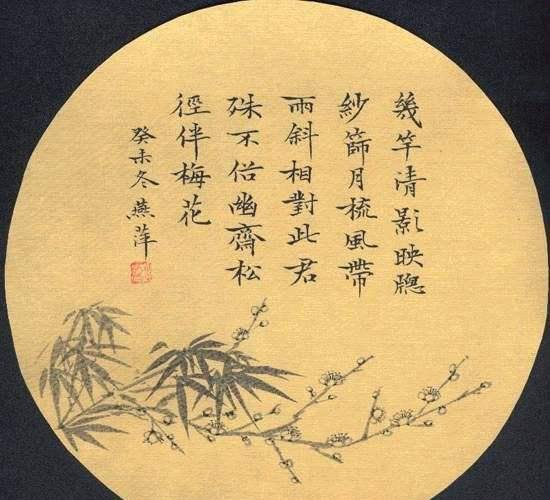 幾竿清影映牕
紗篩月梳風帶
雨斜相對此君
殊不俗幽齋松
徑伴梅花
癸未冬燕萍